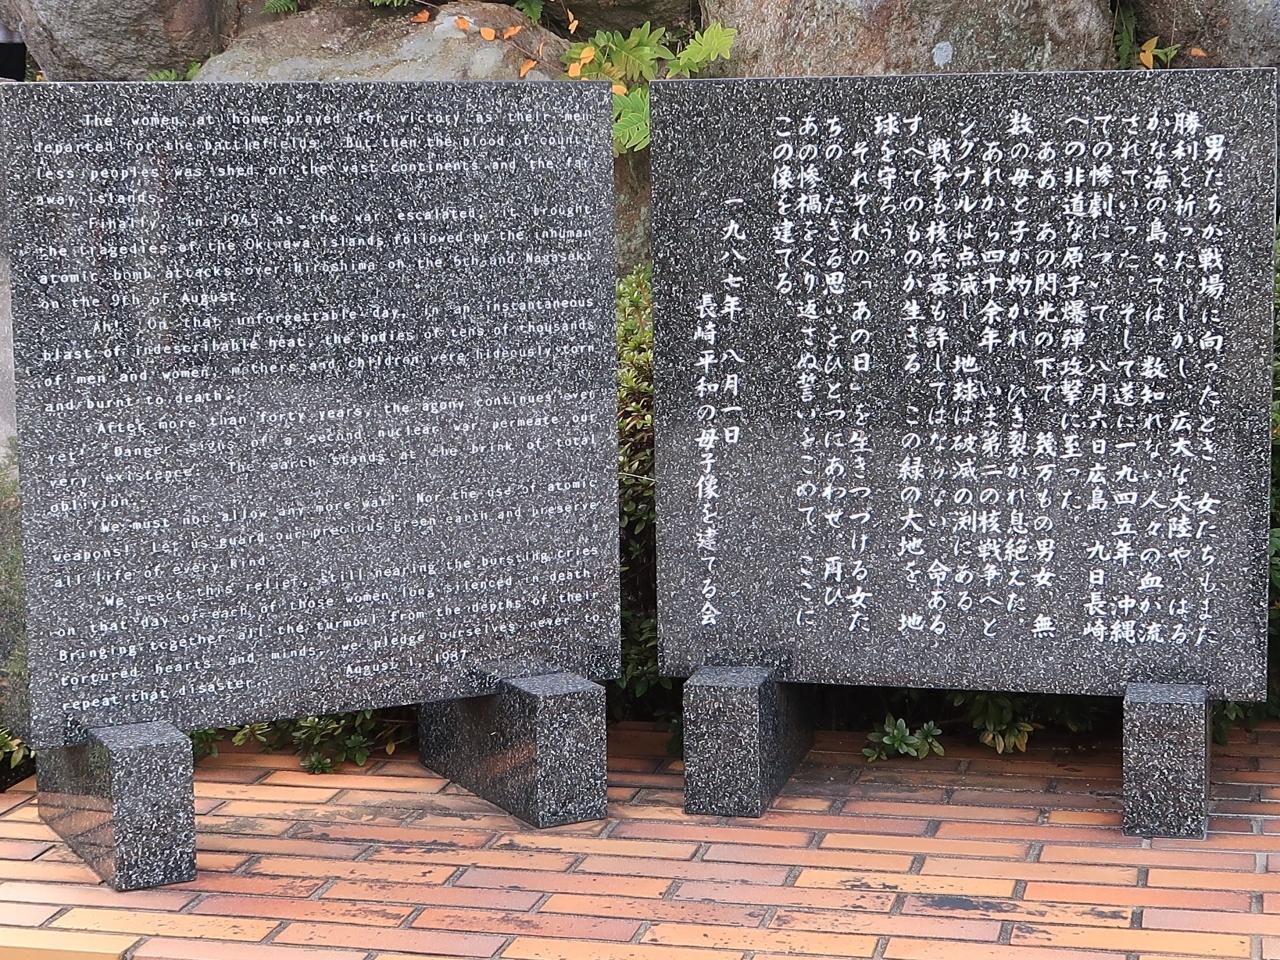 The women at home prayed for victory as their men
departed for the battlefields. But then the blood of count-
less peoples was shed on the vast continents and the far
away islands.
Finally, in 1945 as the war escalated, it brought
the tragedies of the Okinawa islands followed by the inhuman
atomic bomb attacks over Hiroshima on the 6th and Nagasaki
on the 9th of August.
Ah! On that unforgettable day, in an instantaneous
blast of indescribable heat, the bodies of tens of thousands
of men and women, mothers and children were hideously torn
and burnt to death.
After more than forty years, the agony continues even
yet. Danger signs of a second nuclear war permeate our
very existence. The earth stands at the brink of total
oblivion.
We must not allow any more war! Nor the use of atomic
weapons! Let us guard our precious green earth and preserve
all life of every kind.
We erect this relief, still hearing the bursting cries
on that day of each of those women long silenced in death.
Bringing together all the turmoil from the depths of their
tortured hearts and minds, we pledge ourselves never to
repeat that disaster. August 1, 1987
男たちが戦場に向ったとき、女たちもまた
勝利を祈った。しかし、広大な大陸や、はる
かな海の島々では、数知れない人々の血が流
されていった。そして遂に一九四五年、沖縄
での惨劇につづいて、八月六日広島、九日長崎
への非道な原子爆弾攻撃に至った。
ああ、あの閃光の下で、幾万もの男女、無
数の母と子が灼かれ、ひき裂かれ息絶えた。
あれから四十余年、いま第二の核戦争へと
シグナルは点滅し、地球は破滅の渕にある。
戦争も核兵器も許してはならない。命ある
すべてのものが生きる、この緑の大地を、地
球を守ろう。
それぞれの「あの日」を生きつづける女た
ちの、たぎる思いをひとつにあわせ、再び
あの惨禍をくり返さぬ誓いをこめて、ここに
この像を建てる。
一九八七年 八月一日
長崎平和の母子像を建てる会